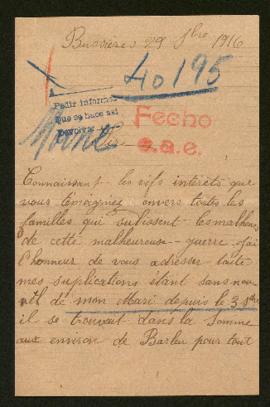 Bussières 29 7bre 1916
40195
Pedir informes
que se hace así
Fecho
e.a.e.
Connaissant les vifs intérêts que
vous témoignez envers toutes les
familles qui subissent les malheurs
de cette malheureuse guerre j'ai
l'honneur de vous adresser toute
mes suplications étant sans nou
de mon Mari depuis le 3
il se trouvait dans la Somme
aux environ de Barleu pour tout